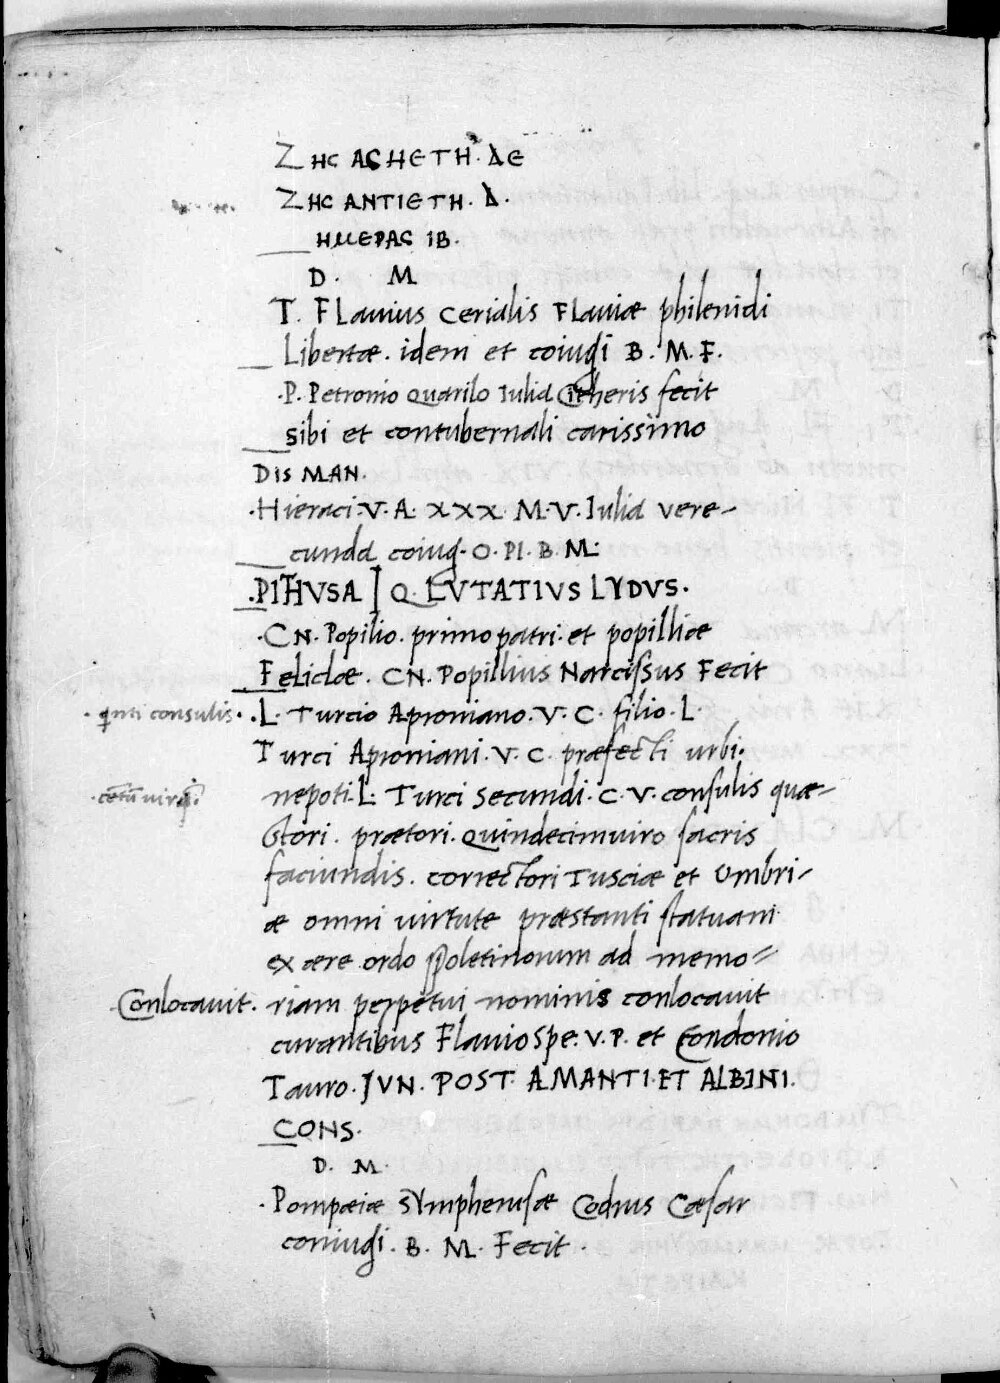 ZHC ACHETH. ΔE
ZHC ANTIETH. Δ.
HMEPAC IB.
D. M
T. FLavius Cerialis FLaviæ philenidi
Libertæ. idem et coiugi B. M. F.
.P. Petronio Quarilo Iulia Citheris fecit
sibi et contubernali carissimo
DIS MAN.
.Hieraci. V. A. XXX. M. V. Iulia vere-
cunda coiug. O. PI. B. M.
.PITHVSA | Q. LVTATIVS LYDVS.
.CN. Popilio. primo patri. et popilliæ
Feliclæ. CN. Popillius Narcissus Fecit
. qnti consulis. .L. Turcio Aproniano. V. C. filio. L.
Turci Aproniani. V. C. præfecti urbi.
nepoti. L. Turci Secundi. C. V. consulis quæ-
stori. prætori. Quindecimviro sacris
faciundis. correctori Tusciæ et Umbri-
æ omni virtute præstanti statuam
ex ære ordo spoletinorum ad memo=
.Conlocavit. riam perpetui nominis conlocavit
curantibus Flavio Spe. V. P. et Condonio
Tauro. JVN. POST. AMANTI. ET ALBINI.
CONS.
D. M.
.Pompæiæ SYmpherusæ Codrus Cæsar
coniugi. B. M. Fecit.